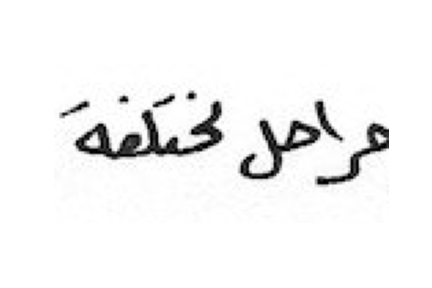 مراحل مختلفة